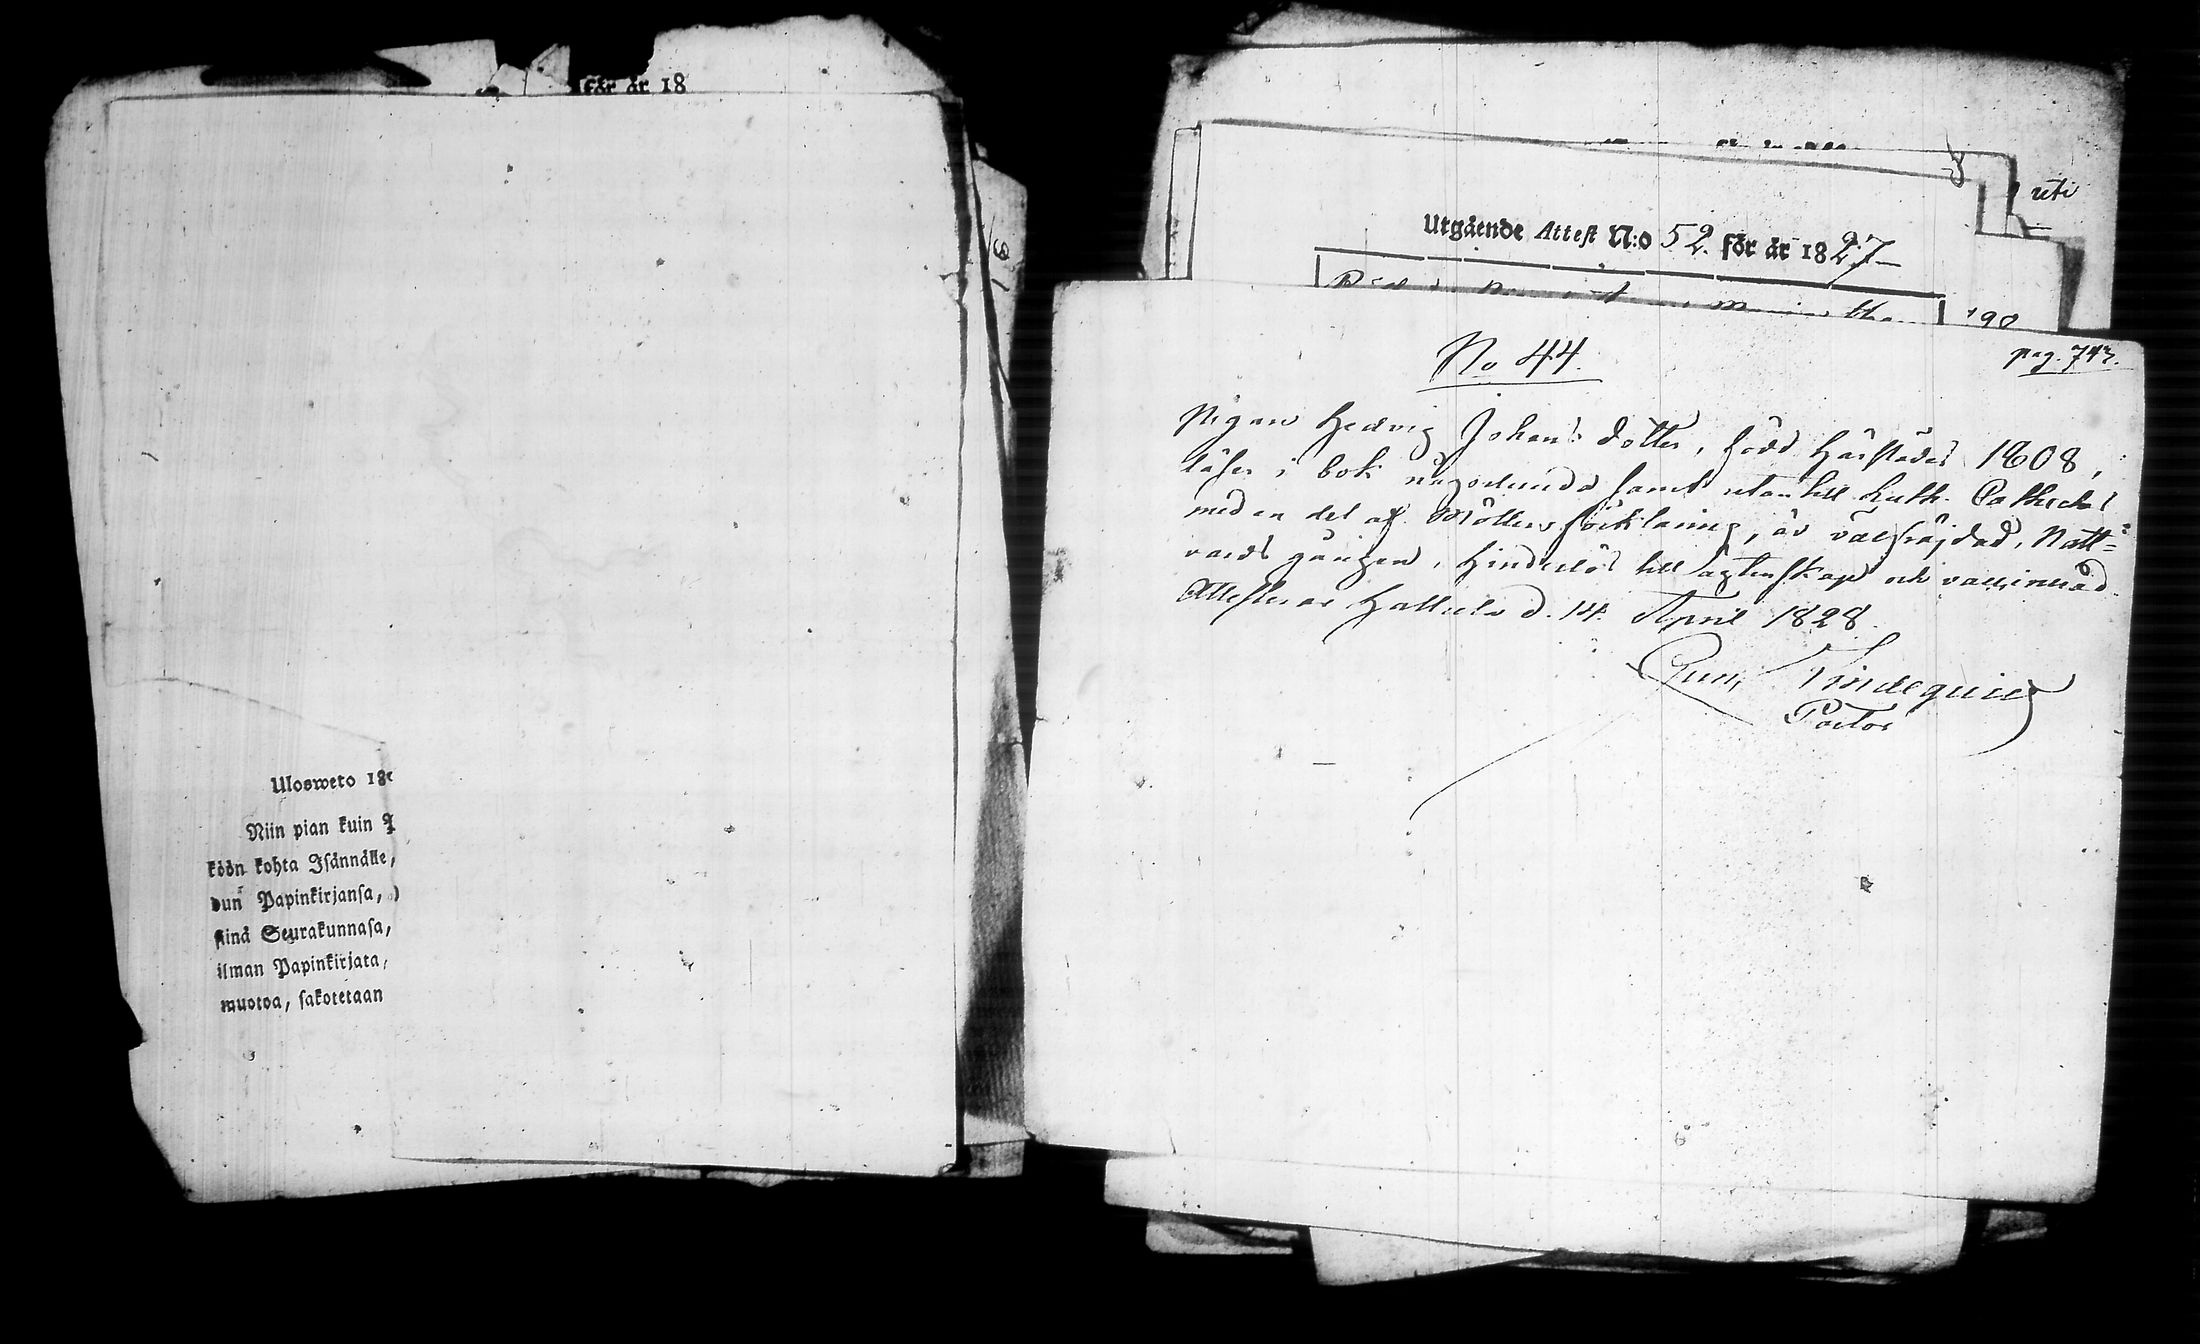 för år 18
Ulosweto 18
Niin pian kuin
köön kohta Isännälle,
dun Papinkirjansa,
siinä Seurakunnasa,
ilman Papinkirjata,
muotoa, sakotetaan
Utgående Attest N:o 52. för år 1827
No 44.
pag. 743.
Pigan Hedvig Johans dotter, född härstädes 1808,
läser i bok någorlunda samt utan till Luth. Catheches
med en del af förklaring, är välfräjdad, Natt=
vards gången, hinderlös till ägtenskap och vaccinerad.
Attesteras Hattula d. 14. April 1828.
Pastor